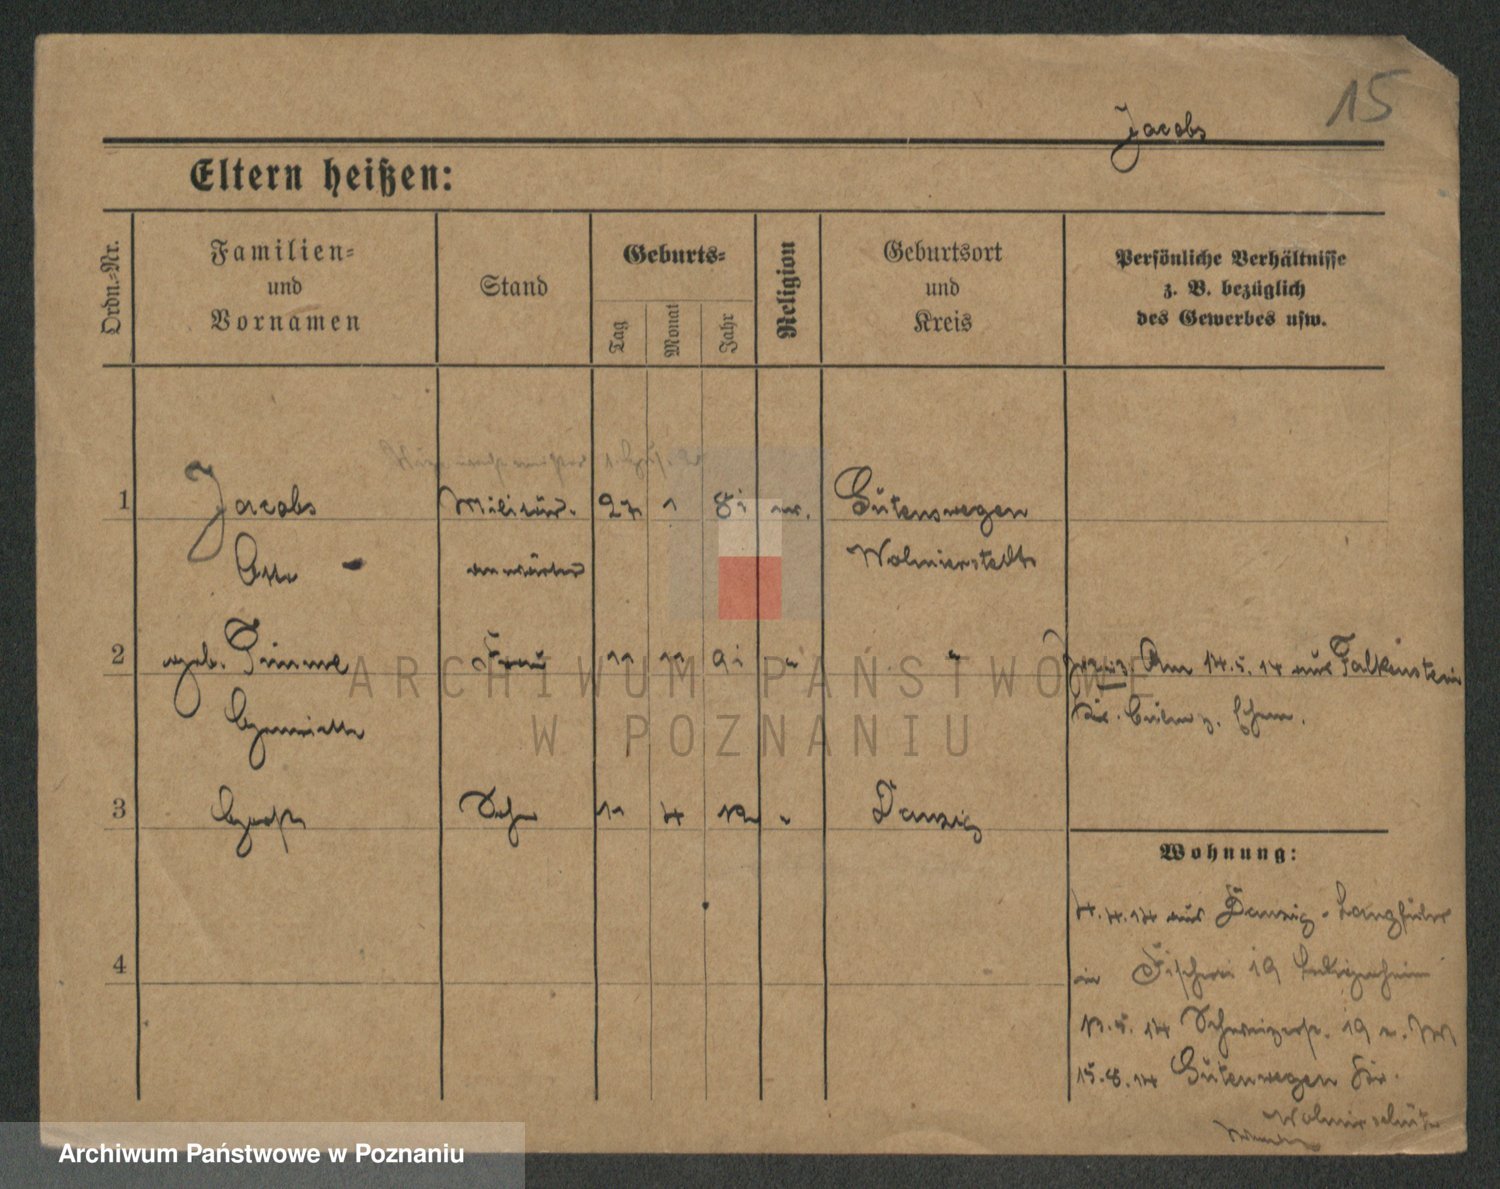 15
Jacobs
Eltern heißen:
Ordn.-Nr.
Familien- und Vornamen
Stand
Geburts-
Tag
Monat
Jahr
Religion
Geburtsort und Kreis
Persönliche Verhältnisse z. B. bezüglich des Gewerbes usw.
1 Jacobs Militär- 27 1 81 ev. Gutenswegen
Otto anwärter Wolmirstedt
2 geb. Timme Frau 11 11 91 " "
Henriette
Am 14.5.14 aus Falkenstein
3 Sohn 11 4 12 " Danzig
Wohnung:
4.4.14 aus Danzig-Langfuhr
4
in Fischerei 19
13.5.14 19
15.8.14 Gutenswegen Kr.
ARCHIWUM PAŃSTWOWE
W POZNANIU
Archiwum Państwowe w Poznaniu